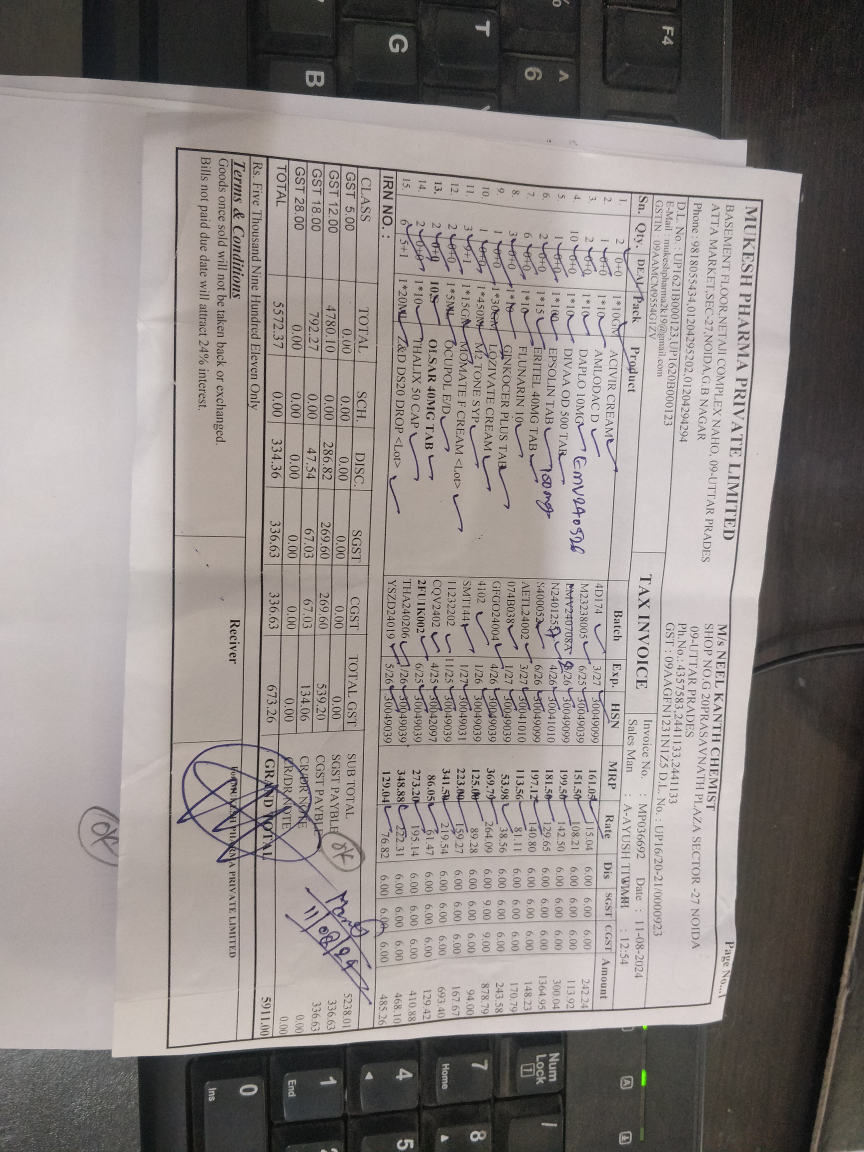 Page No...1
MUKESH PHARMA PRIVATE LIMITED
BASEMENT FLOOR,NETAJI COMPLEX NAHO, 09-UTTAR PRADES
ATTA MARKET,SEC-27,NOIDA,G.B NAGAR
Phone : 9818055434,01204295202,01204294294
D.L. No. : UP1621B000123,UP1620B000123
E-Mail : mukeshpharma2k19@gmail.com
GSTIN : 09AAMCM9554G1ZV
M/s NEEL KANTH CHEMIST
SHOP NO.G 20PRASAVNATH PLAZA SECTOR -27 NOIDA
09-UTTAR PRADES
Ph.No.: 4357583,2441133,2441133
GST : 09AAGFN1231N1Z5 D.L. No. : UP16/20-21/0000923
TAX INVOICE
Invoice No. : MP036692 Date : 11-08-2024
Sales Man : A-AYUSH TIWARI : 12:54
Sn. Qty. DEAL Pack Product Batch Exp. HSN MRP Rate Dis SGST CGST Amount
1. 2 0+0 1*10GM ACIVIR CREAM 4D174 3/27 30049099 161.05 115.04 6.00 6.00 6.00 242.24
2. 1 0+0 1*10 AMLODAC D M23238005 6/25 30049039 151.50 108.21 6.00 6.00 6.00 113.92
3. 2 0+0 1*10 DAPLO 10MG EMV240526 EMV240708A 30049099 199.50 142.50 6.00 6.00 6.00 300.04
4. 10 0+0 1*10 DIVAA OD 500 TAB N2401259 4/26 30041010 181.50 129.65 6.00 6.00 6.00 1364.95
5. 1 0+0 1*100 EPSOLIN TAB 100mg S400052 6/26 30049099 197.12 140.80 6.00 6.00 6.00 148.23
6. 2 0+0 1*15 ERITEL 40MG TAB AETL24002 3/27 30041010 113.56 81.11 6.00 6.00 6.00 170.79
7. 6 0+0 1*10 FLUNARIN 10 074B038 1/27 30049039 53.98 38.56 6.00 6.00 6.00 243.58
8. 3 0+0 1*10 GINKOCER PLUS TAB GFGO24004 4/26 30049039 369.79 264.09 6.00 9.00 9.00 878.79
9. 1 0+0 1*30GM LOZIVATE CREAM 4102 1/26 30049039 125.00 89.28 6.00 6.00 6.00 94.00
10. 1 0+0 1*450ML M2 TONE SYP SMT144 1/27 30049031 223.00 159.27 6.00 6.00 6.00 167.67
11. 3 0+1 1*15GM MOMATE F CREAM <Lot> 11232202 11/25 30049039 341.50 219.54 6.00 6.00 6.00 693.40
12. 2 0+0 1*5ML OCUPOL E/D CQV2402 4/25 30042097 86.05 61.47 6.00 6.00 6.00 129.42
13. 2 0+0 10S OLSAR 40MG TAB 2FU1K002 6/25 30049039 273.20 195.14 6.00 6.00 6.00 410.88
14. 2 0+0 1*10 THALIX 50 CAP THA240206 1/26 30049039 348.88 222.31 6.00 6.00 6.00 468.10
15. 6 5+1 1*20ML Z&D DS20 DROP <Lot> YSZD24019 5/26 30049039 129.04 76.82 6.00 6.00 6.00 485.26
IRN NO. :
CLASS TOTAL SCH. DISC. SGST CGST TOTAL GST
GST 5.00 0.00 0.00 0.00 0.00 0.00 0.00
GST 12.00 4780.10 0.00 286.82 269.60 269.60 539.20
GST 18.00 792.27 0.00 47.54 67.03 67.03 134.06
GST 28.00 0.00 0.00 0.00 0.00 0.00 0.00
TOTAL 5572.37 0.00 334.36 336.63 336.63 673.26
SUB TOTAL 5238.01
SGST PAYBLE 336.63
CGST PAYBLE 336.63
CR/DR NOTE 0.00
CR/DR NOTE 0.00
OK
11/08/24
Rs. Five Thousand Nine Hundred Eleven Only
GRAND TOTAL 5911.00
Terms & Conditions
Goods once sold will not be taken back or exchanged.
Bills not paid due date will attract 24% interest.
Reciver
For MUKESH PHARMA PRIVATE LIMITED
OK
F4
T
G
B
^
6
Num
Lock
7
Home
8
4
5
1
End
0
Ins